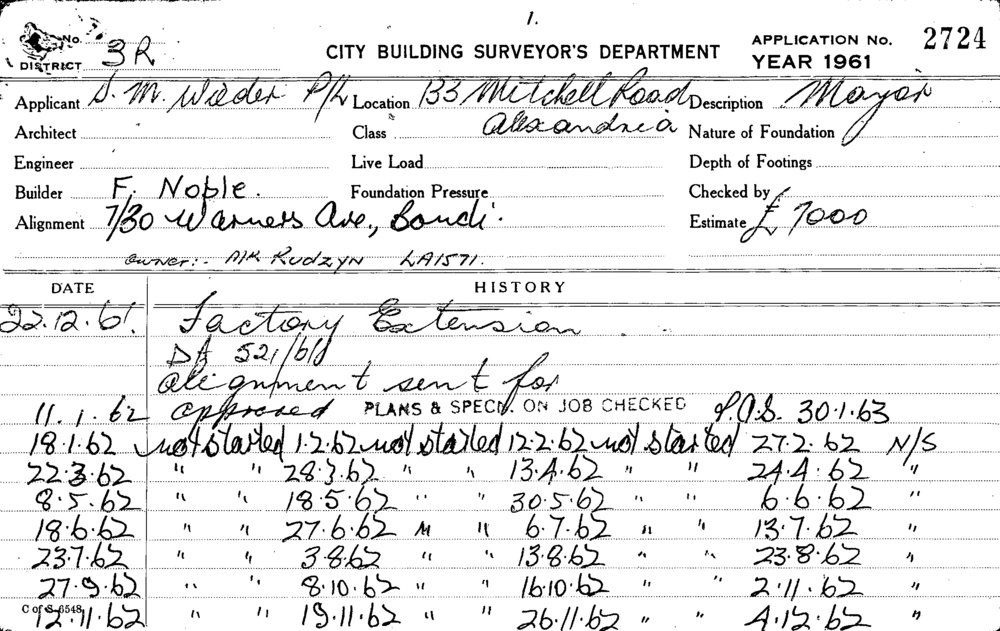 1.
No. 3R
DISTRICT
CITY BUILDING SURVEYOR'S DEPARTMENT
APPLICATION No. 2724
YEAR 1961
Applicant S. M. Wieder P/L Location 133 Mitchell Road Description Major
Architect Class Alexandria Nature of Foundation
Engineer Live Load Depth of Footings
Builder F. Noble. Foundation Pressure Checked by
Alignment 7/30 Warners Ave., Bondi. Estimate £ 7000
owner:- M/R RUDZYN LA1571.
DATE HISTORY
22.12.61. Factory Extension
DA 521/61
Alignment sent for
11.1.62 approved PLANS & SPECN. ON JOB CHECKED 30.1.63
18.1.62 not started 1.2.62 not started 12.2.62 not started 27.2.62 N/S
22.3.62 " " 28.3.62 " " 13.4.62 " " 24.4.62 "
8.5.62 " " 18.5.62 " " 30.5.62 " " 6.6.62 "
18.6.62 " " 27.6.62 " " 6.7.62 " " 13.7.62 "
23.7.62 " " 3.8.62 " " 13.8.62 " " 23.8.62 "
27.9.62 " " 8.10.62 " " 16.10.62 " " 2.11.62 "
C of S 6548
12.11.62 " " 19.11.62 " " 26.11.62 " " 4.12.62 "